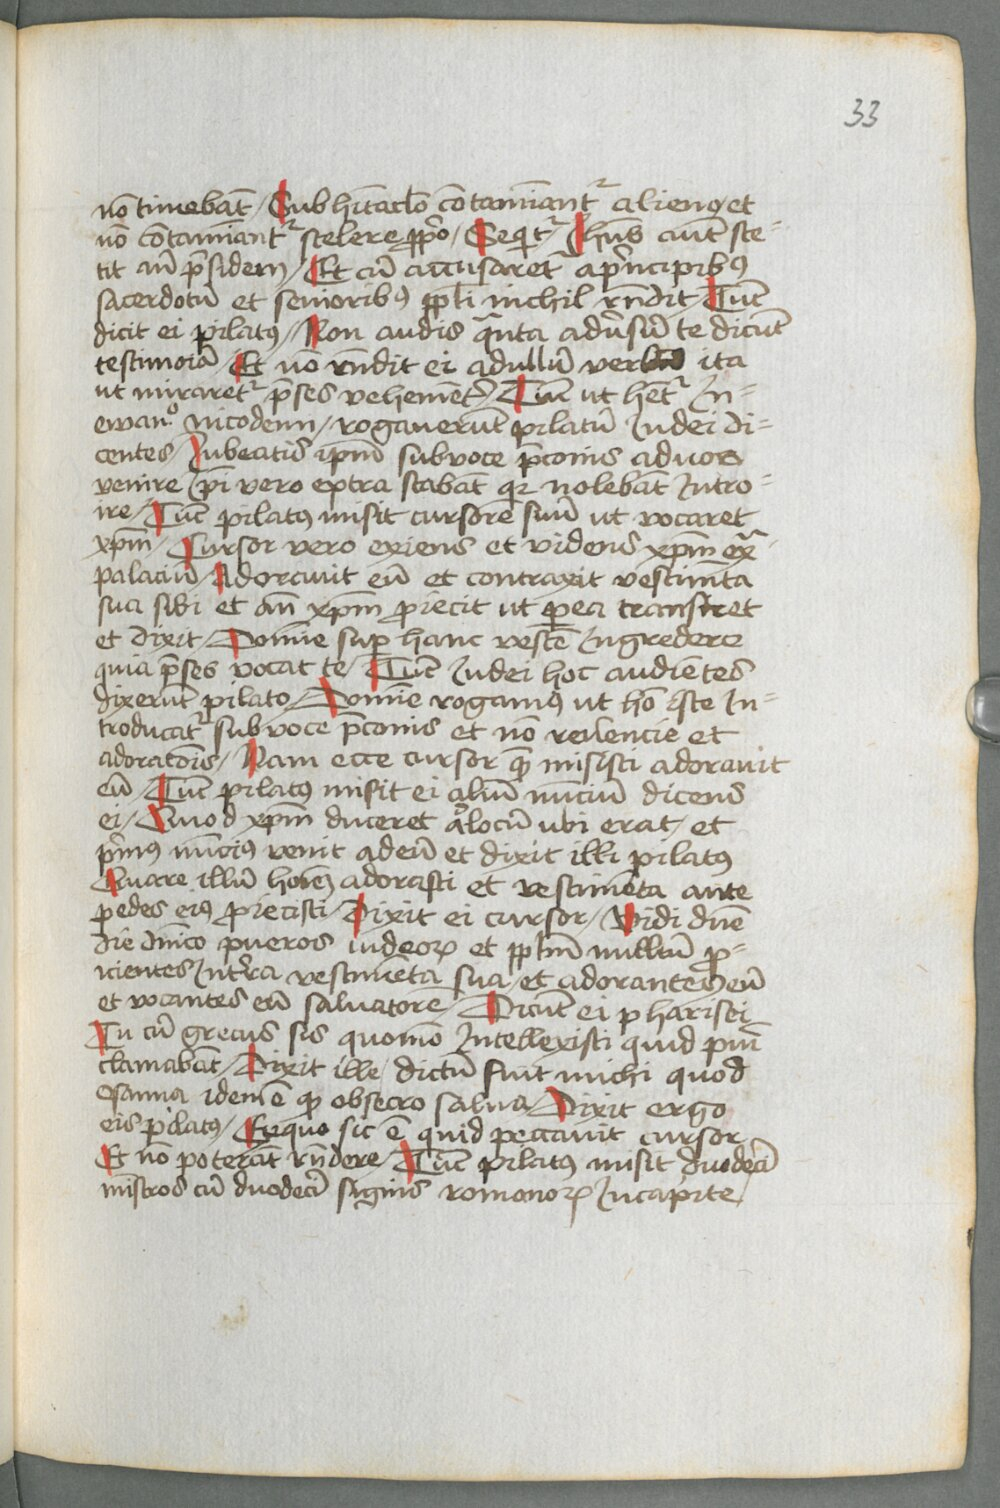 33
nō timebāt / Cub hītaclō cōtamīant᷑ alieno et
nō cōtamīant᷑ scelere ꝓp̄o / Seqit᷑ / Ihūs aūt ste⸗
tit an̄ p̄sidem / Et cū accusaret᷑ a p̄ncipibꝯ
sacerdotū et senioribꝯ ppl̄i nichil rn̄dit / Tūc
dicit ei pilatꝯ / Non audis q̄nta adūsū te dicūt
testimoīa / Et nō rn̄dit ei ad ullū verbū ita
ut miraret᷑ p̄ses vehemēt᷑ / Tūc ut het᷑ In⸗
ewanᵒ nicodemi / rogauerūt pilatū Iudei di⸗
centes / Iubeatis ipm̄ sub voce p̄conis ad uos
venire / Ip̄i vero extra stabāt qꝛ nolebāt Intro⸗
ire / Tūc pilatꝯ misit cursorē suū ut vocaret
xpm̄ / Cursor vero exiens et videns xpm̄ ex̄ᵃ
palaciū / Adorauit eū et contraxit vestimēta
sua sibi et an̄ xpm̄ ꝓiecit ut ꝑ ea transiret
et dixit / Domīe suꝑ hanc vestē Ingredere
quia p̄ses vocat te / Tūc Iudei hoc audiētes
dixerūt pilato / Domīe rogamꝯ ut hō iste In⸗
troducat᷑ sub voce p̄conis et nō reūencie et
adoratōis / Nam ecce cursor quē misisti adorauit
eū / Tūc pilatꝯ misit ei aliū nūciū dicens
ei / Quod xpm̄ duceret ad locū ubi erat / et
p̄mꝯ nūcius venit ad eū et dixit illi pilatꝯ
Quare illū hoīem adorasti et vestimēta ante
pedes eiꝯ ꝓiecisti / Dixit ei cursor / Vidi dūe
die dn̄ico pueros iudeoꝝ et ppl̄m multū ꝓ⸗
icientes In t̄ra vestimēta sua / et adorantes eū
et vocantes eū saluatorē / Dicūt ei pharisei
Tu cū grecus sis quomō Intellexisti quid pūi
clamabāt / Dixit ille / dictū fuit michi quod
osanna idem ē qd̄ obsecro salua / Dixit ergo
eis pilatꝯ / Ex quo sic ē quid peccauit cursor
Et nō poterāt rn̄dere / Tūc pilatꝯ misit duodeci
mīstros cū duodeci signis romanoꝝ In capite /